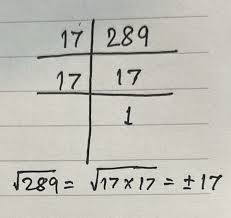 17 289
17 17
1
√289 = √17×17 = ±17